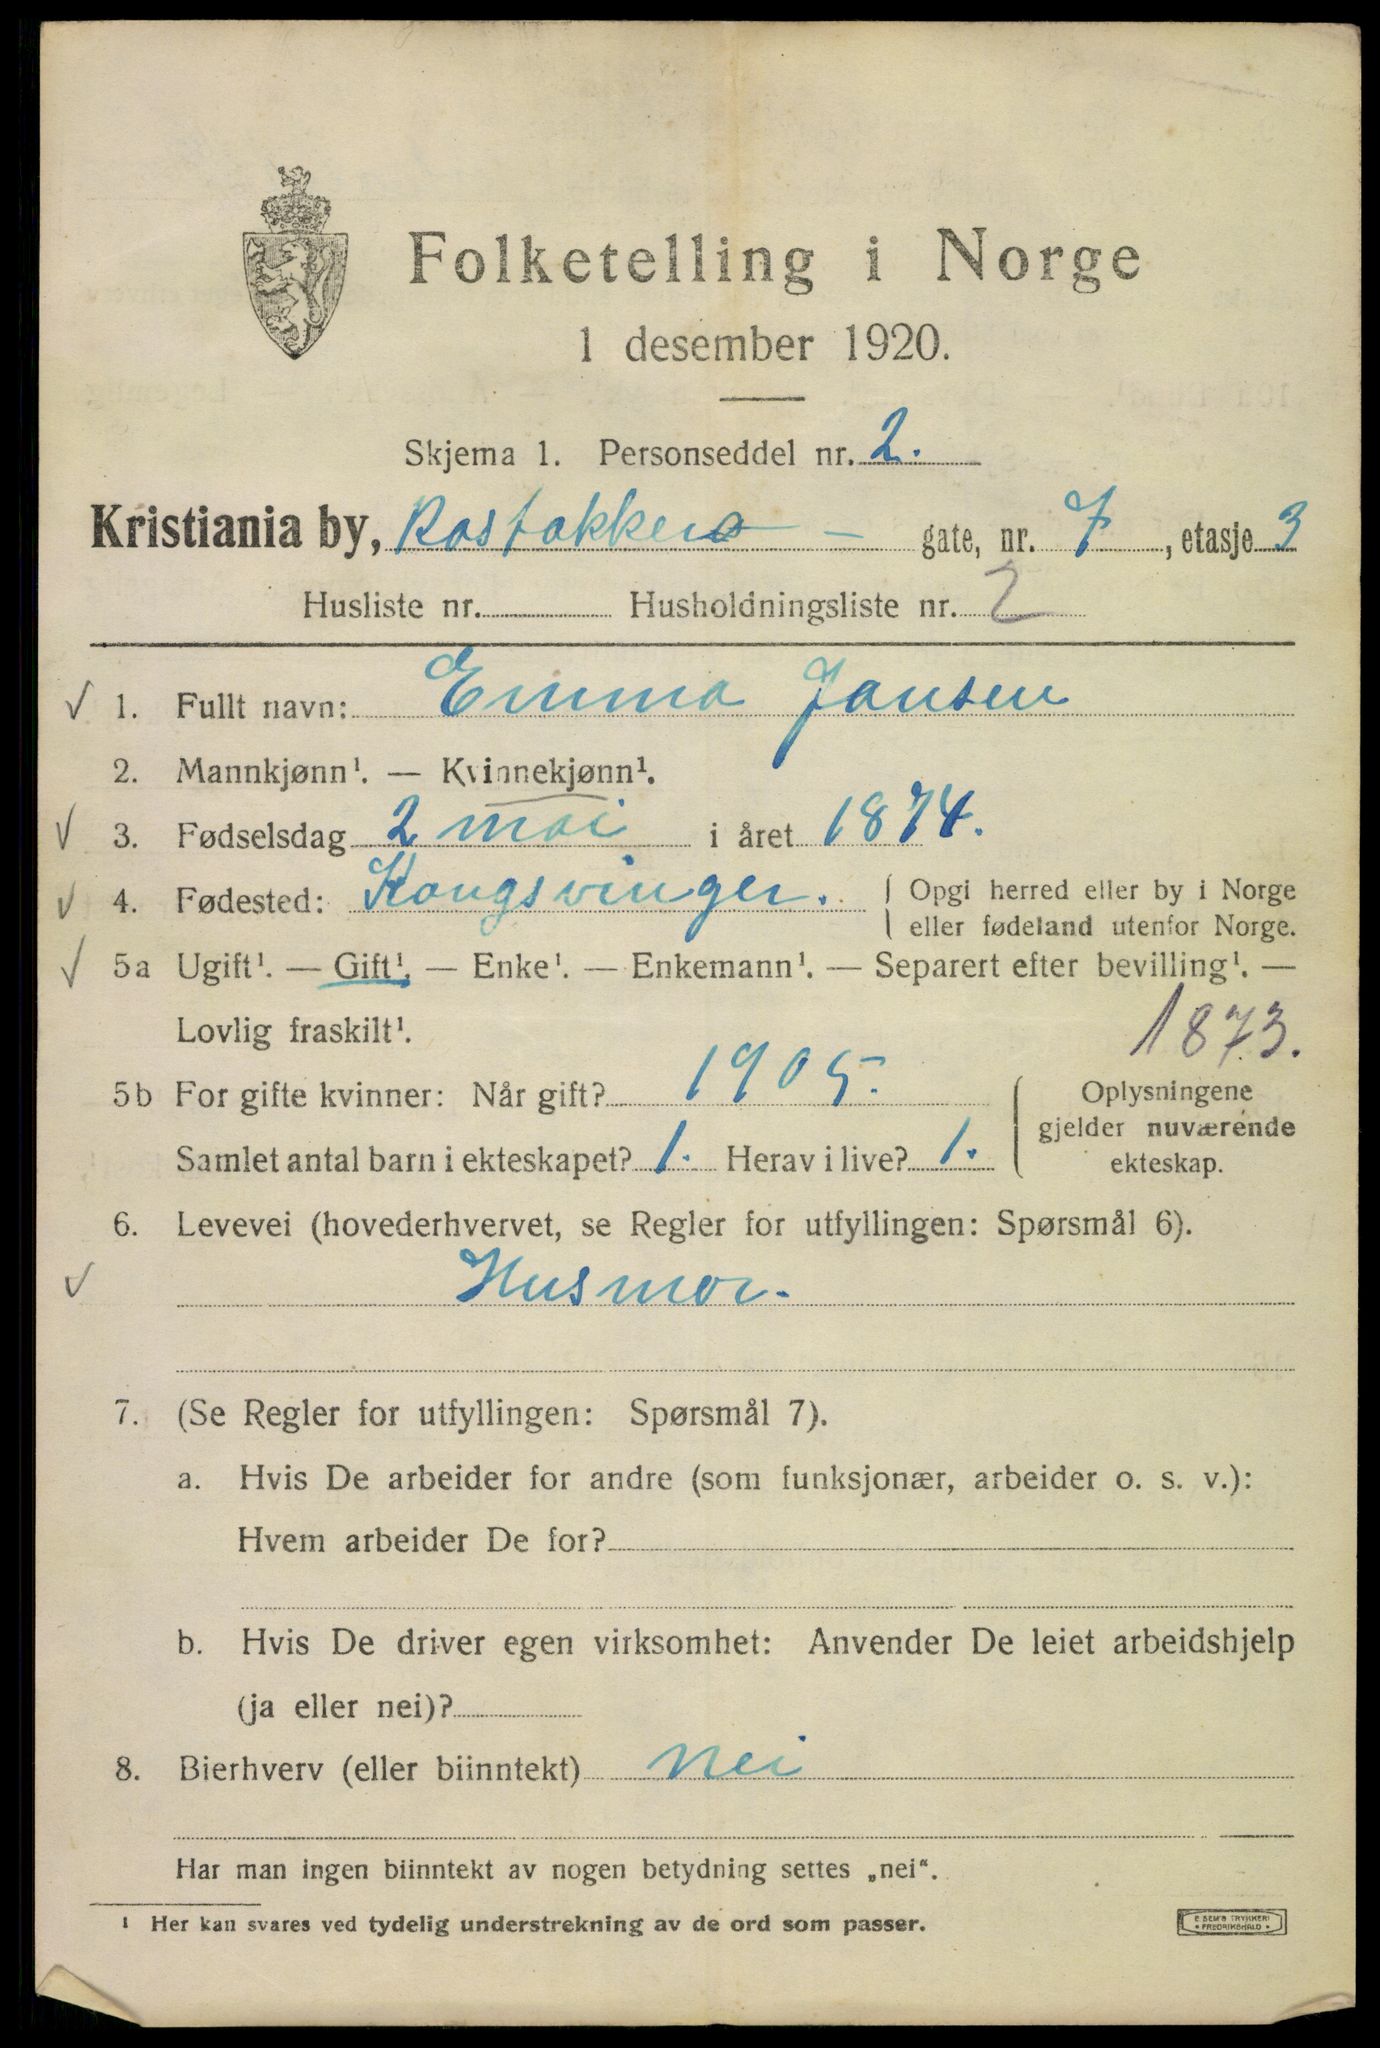 Folketelling i Norge
1 desember 1920.
Skjema 1. Personseddel nr. 2.
Kristiania by, Rostokkens - gate, nr. 7, etasje 3
Husliste nr. Husholdningsliste nr. 2
1. Fullt navn: Emma Jansen
2. Mannkjønn¹. — Kvinnekjønn¹.
3. Fødselsdag 2 mai i året 1874.
4. Fødested: Kongsvinger. Opgi herred eller by i Norge
eller fødeland utenfor Norge.
5a Ugift¹. — Gift¹. — Enke¹. — Enkemann¹. — Separert efter bevilling¹. —
Lovlig fraskilt¹. 1873.
5b For gifte kvinner: Når gift? 1905. Oplysningene
gjelder nuværende
Samlet antal barn i ekteskapet? 1. Herav i live? 1. ekteskap.
6. Levevei (hovederhvervet, se Regler for utfyllingen: Spørsmål 6).
Husmor.
7. (Se Regler for utfyllingen: Spørsmål 7).
a. Hvis De arbeider for andre (som funksjonær, arbeider o. s. v.):
Hvem arbeider De for?
b. Hvis De driver egen virksomhet: Anvender De leiet arbeidshjelp
(ja eller nei)?
8. Bierhverv (eller biinntekt) nei
Har man ingen biinntekt av nogen betydning settes „nei“.
¹ Her kan svares ved tydelig understrekning av de ord som passer.
E. SEM'S TRYKKERI
• FREDRIKSHALD •